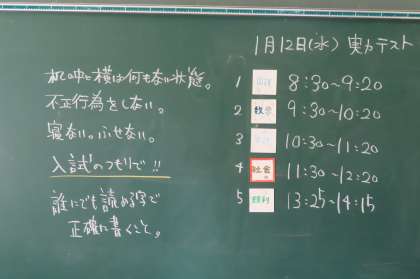 1月12日(水) 実力テスト
机の中と横は何もない状態。
不正行為をしない。
寝ない。ふせない。
入試のつもりで!!
誰にでも読める字で
正確に書くこと。
1 8:30~9:20
2 数学 9:30~10:20
3 10:30~11:20
4 社会 11:30~12:20
5 理科 13:25~14:15